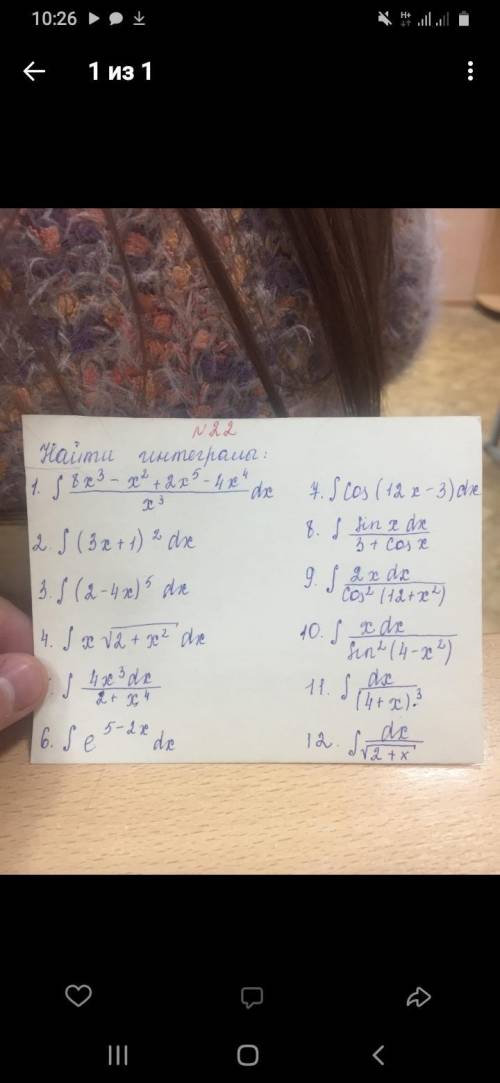 10:26
H+
1 из 1
№22
Найти интегралы:
1. ∫ (8x³ - x² + 2x⁵ - 4x⁴)/x³ dx
2. ∫ (3x+1)² dx
3. ∫ (2-4x)⁵ dx
4. ∫ x √(2 + x²) dx
∫ 4x³dx/(2 + x⁴)
6. ∫ e^(5-2x) dx
7. ∫ cos(12x-3)dx
8. ∫ sin x dx/(3 + cos x)
9. ∫ 2x dx/cos²(12+x²)
10. ∫ x dx/sin²(4-x²)
11. ∫ dx/(4+x)³
12. ∫ dx/√(2+x)